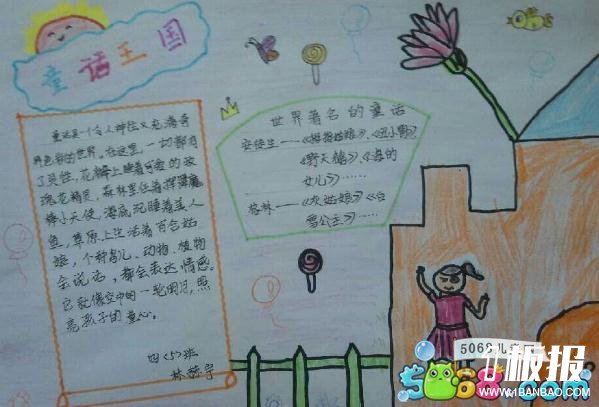 童话王国
童话是一个令人神往又充满奇
异色彩的世界。在这里，一切都有
了灵性，花瓣上睡着可爱的玫
瑰花精灵，森林里住着挥舞魔
棒小天使，海底沉睡着美人
鱼，草原上生活着百合姑
娘，个种鸟儿、动物、植物
会说话，都会表达情感。
它就像空中的一轮明月，照
亮孩子的童心。
四〈5〉班
林
世界著名的童话
安徒生——《拇指姑娘》、《丑小鸭》
《野天鹅》《海的
女儿》……
格林——《灰姑娘》《白
雪公主》……
5068儿童网
板报
5068.com
www.41BANBAO.com